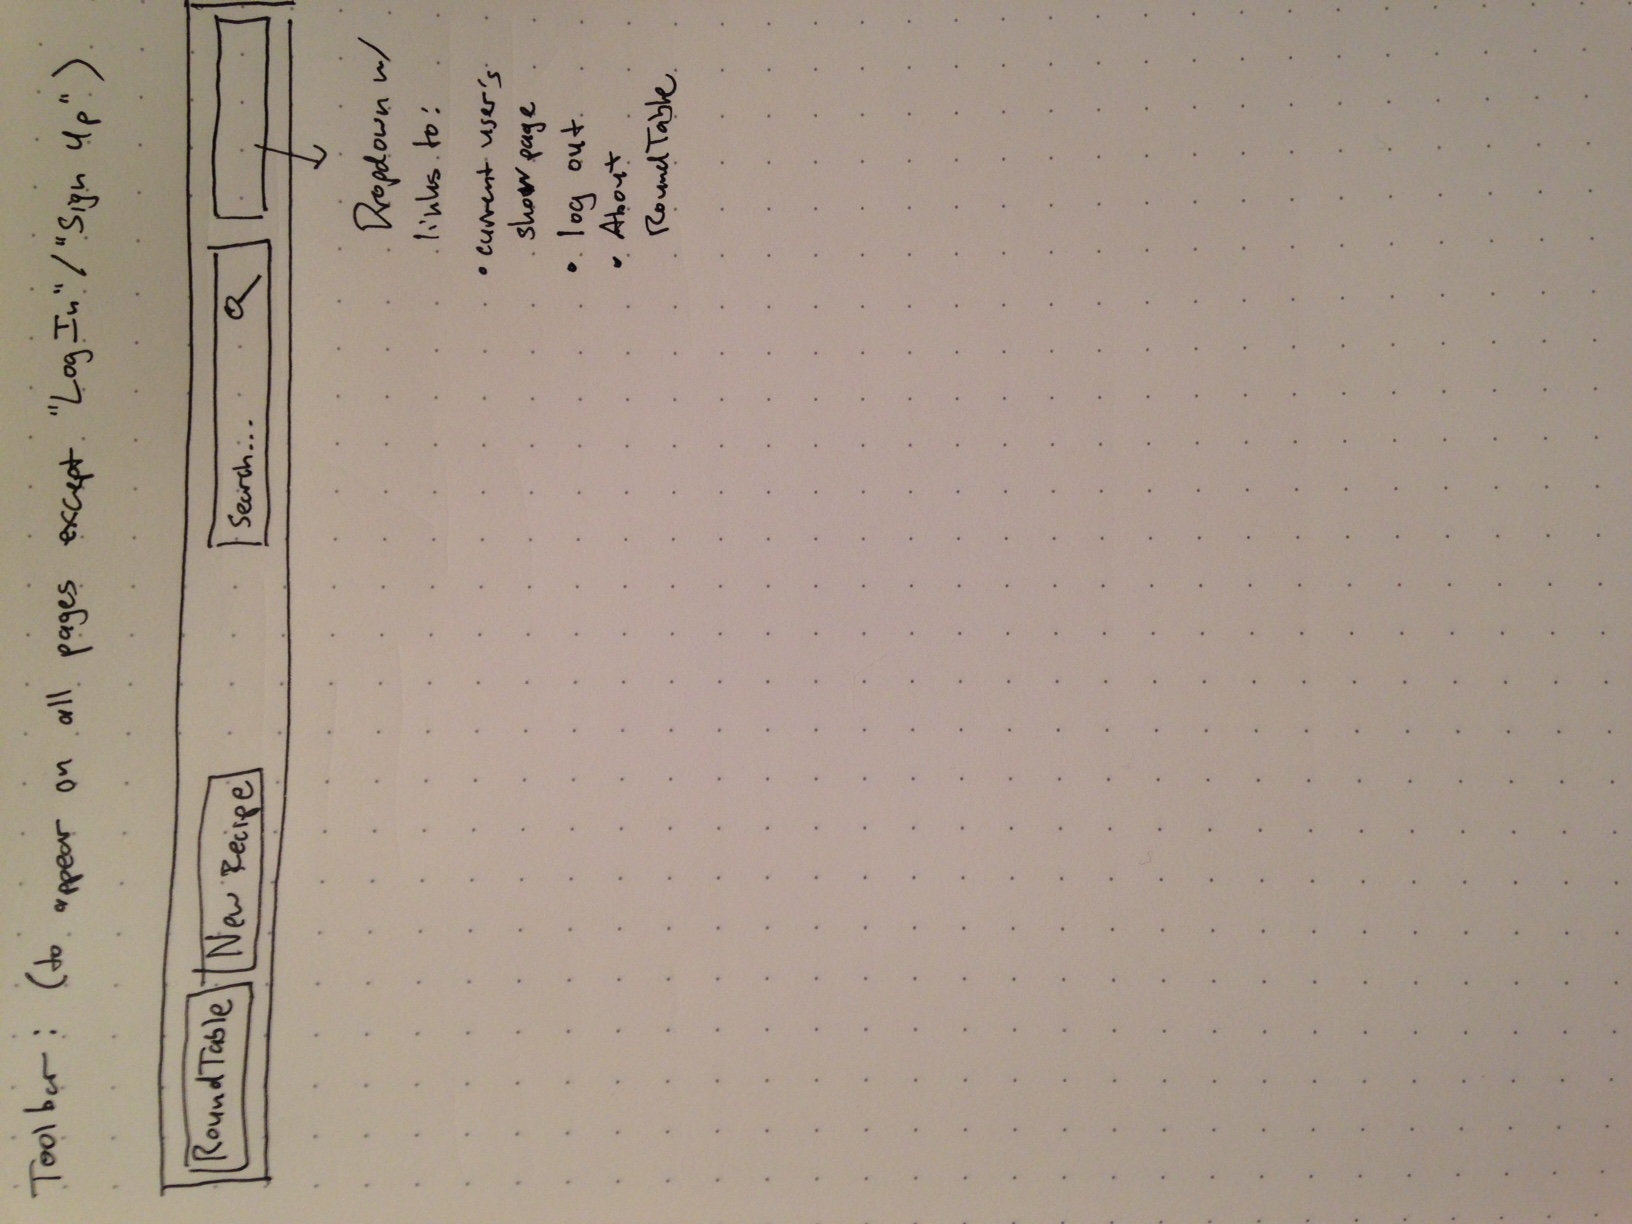 Toolbar: (to appear on all pages except "Log In"/"Sign Up")
RoundTable New Recipe Search...
Dropdown w/
links to:
• current user's
show page
• log out
• About
RoundTable